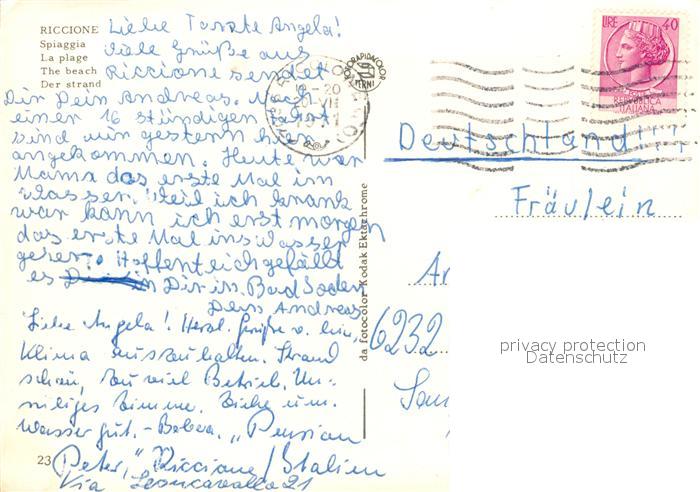 RICCIONE
Spiaggia
La plage
The beach
Der strand
Liebe Tante Angela!
Viele Grüße aus
Riccione sendet
Dir Dein Andreas. Nach
einer 16 stündigen Fahrt
sind wir gestern hier
angekommen. Heute war
Mama das erste Mal im
Wasser. Weil ich krank
war kann ich erst morgen
das erste Mal ins Wasser
gehen. Hoffentlich gefällt
es Dir in Bad Soden
Dein Andreas
Liebe Angela! Herzl. Grüße v. hier,
Klima auszuhalten. Strand
schön, zu viel Betrieb. Un-
ruhiges Zimmer. Küche u.
Wasser gut. - "Pension
Peter," Riccione/Italien
Via Leoncavallo 21
23
da fotocolor Kodak Ektachrome
FOTORAPIDACOLOR
TERNI
LIRE 40
REPVBBLICA
ITALIANA
Deutschland
Fräulein
6232
privacy protection
Datenschutz